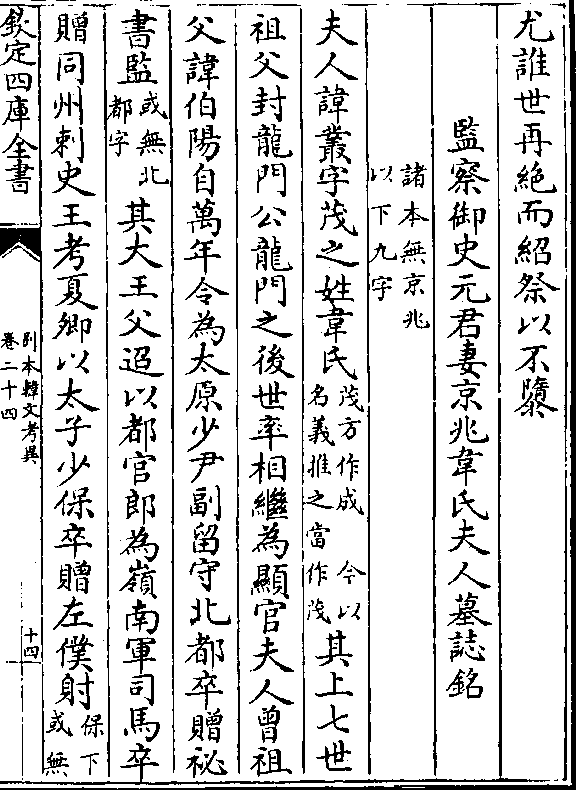 尤誰世再絶而紹祭以不隳
監察御史元君妻京兆韋氏夫人墓誌銘
諸本無京兆
以下九字
夫人諱叢字茂之姓韋氏
茂方作成今以
名義推之當作茂
其上七世
祖父封龍門公龍門之後世率相繼為顯官夫人曽祖
父諱伯陽自萬年令為太原少尹副留守北都卒贈祕
書監
或無北
都字
其大王父迢以都官郎為嶺南軍司馬卒
贈同州刺史王考夏卿以太子少保卒贈左僕射
保下
或無
欽定四庫全書
别本韓文考異
卷二十四
十四